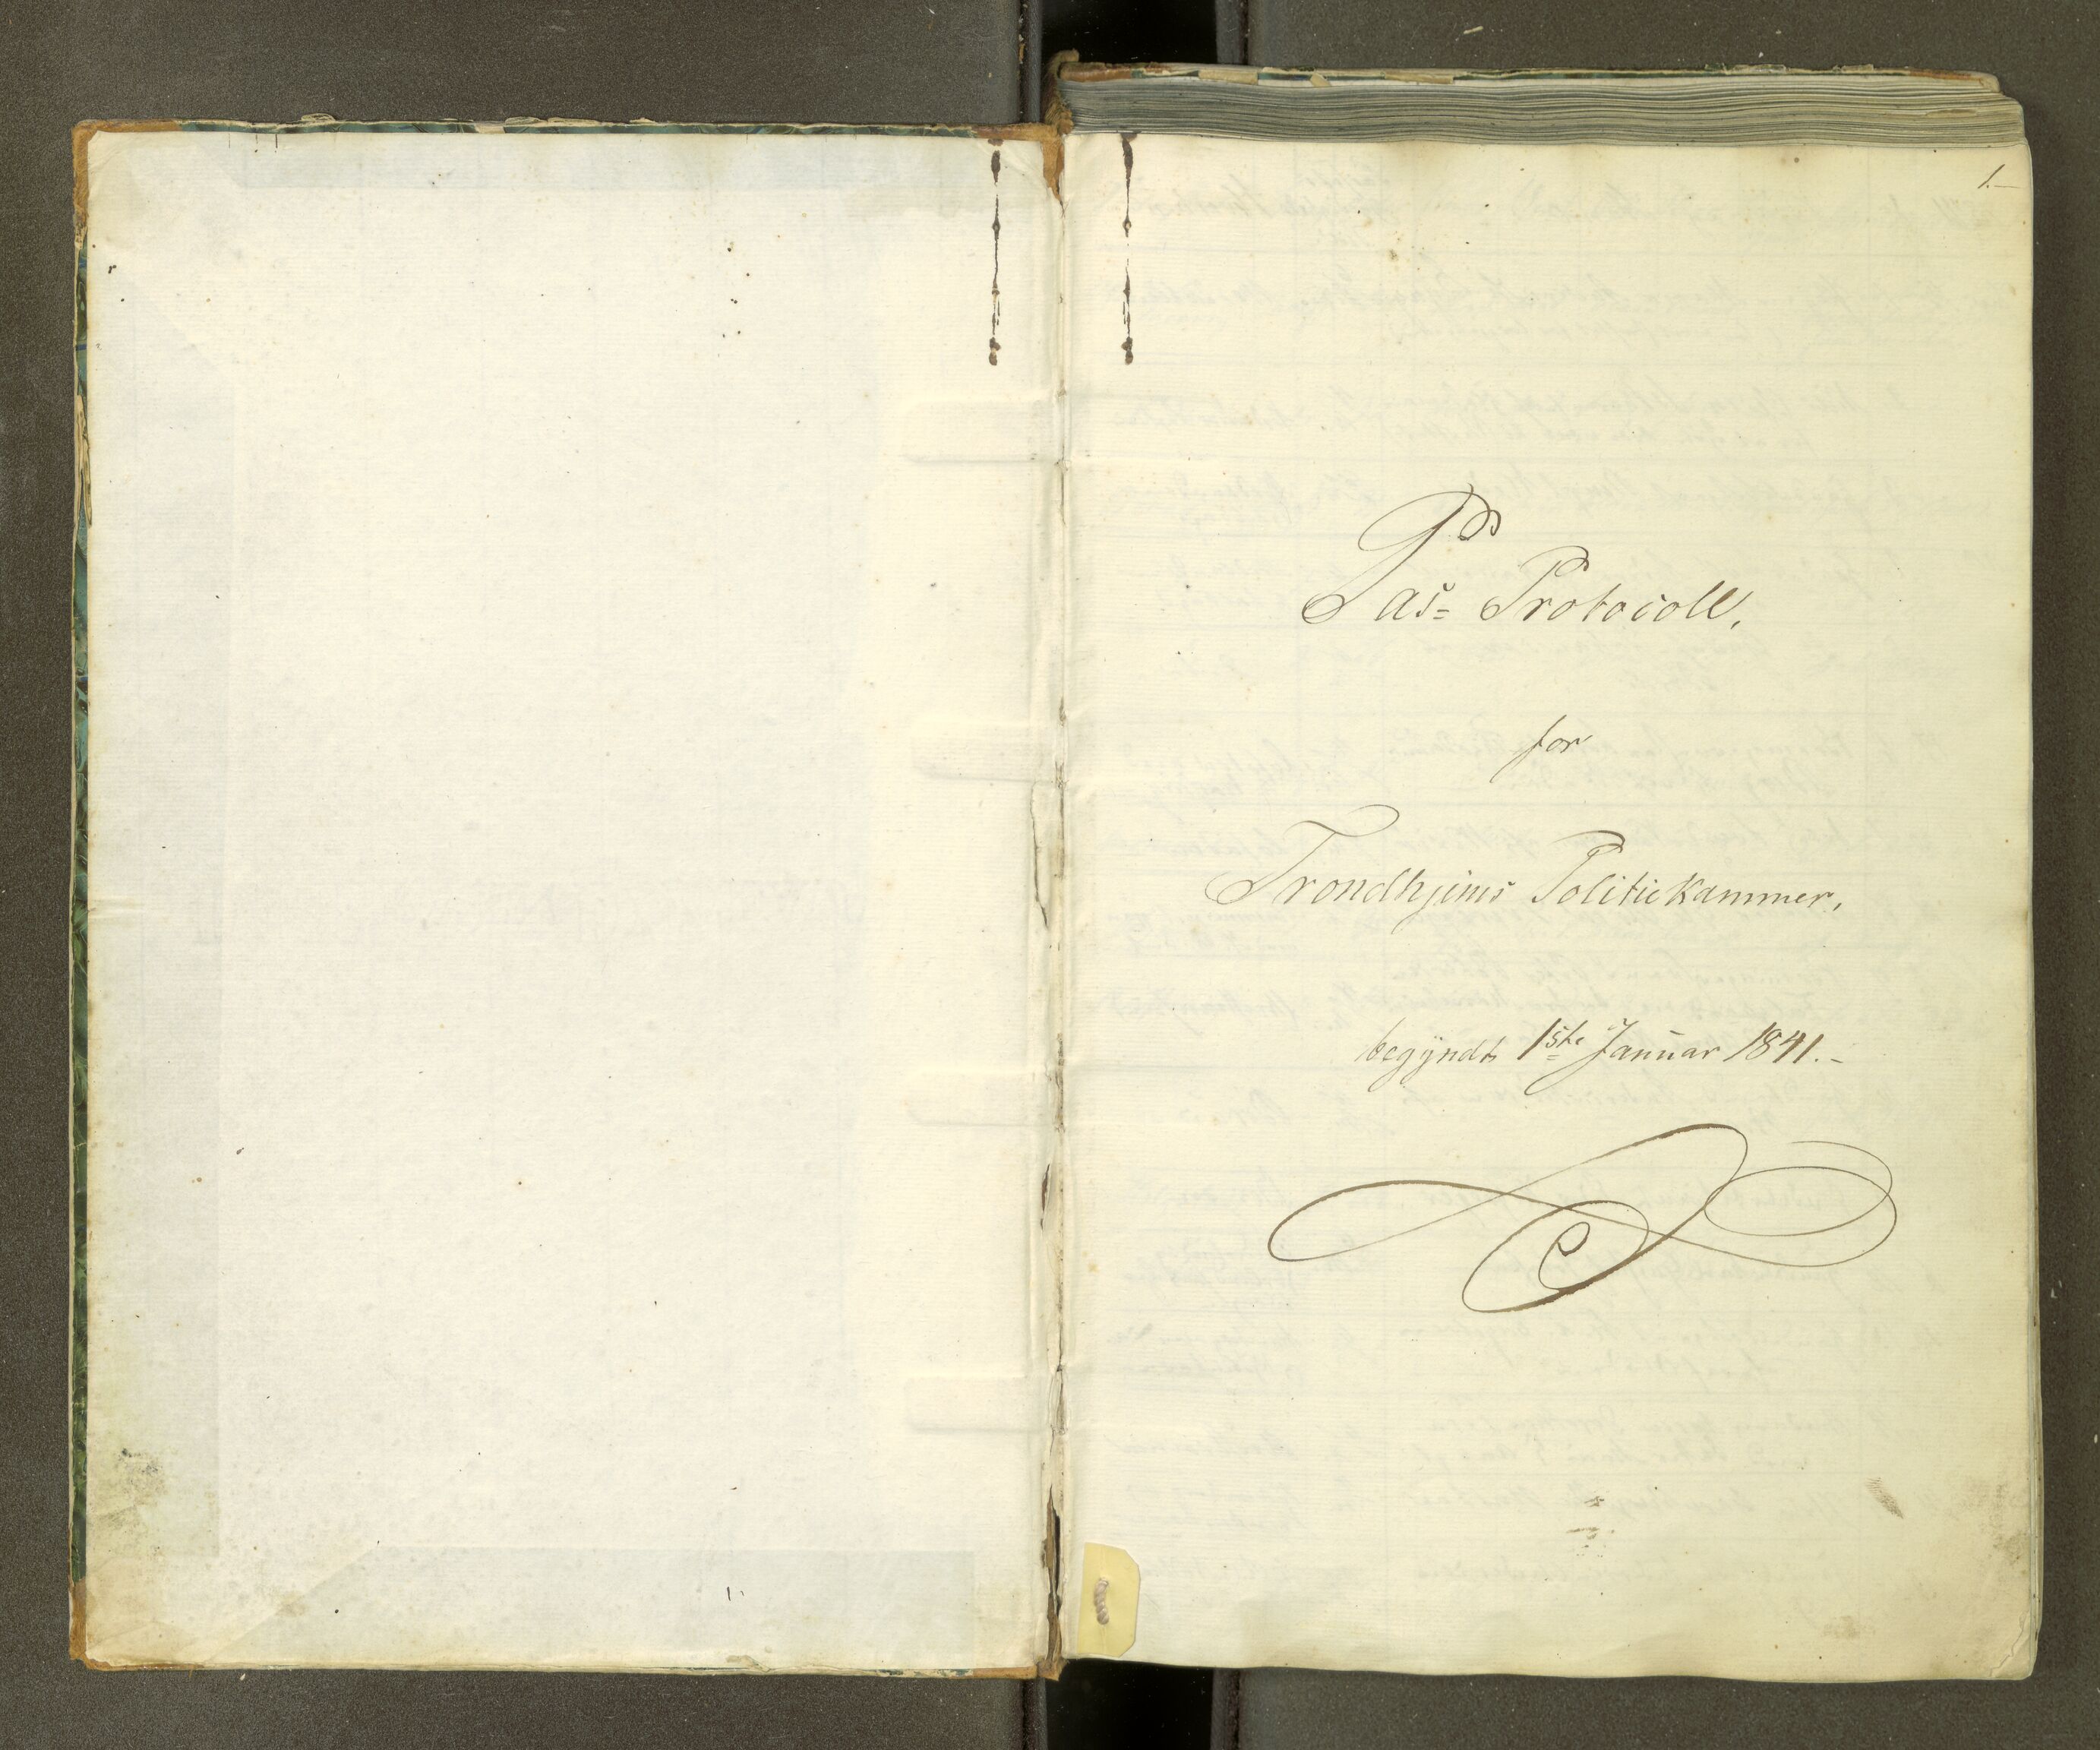 1.-
Pas= Protocoll,
for
Trondhjems Politiekammer,
begyndt 1ste Januar 1841.-